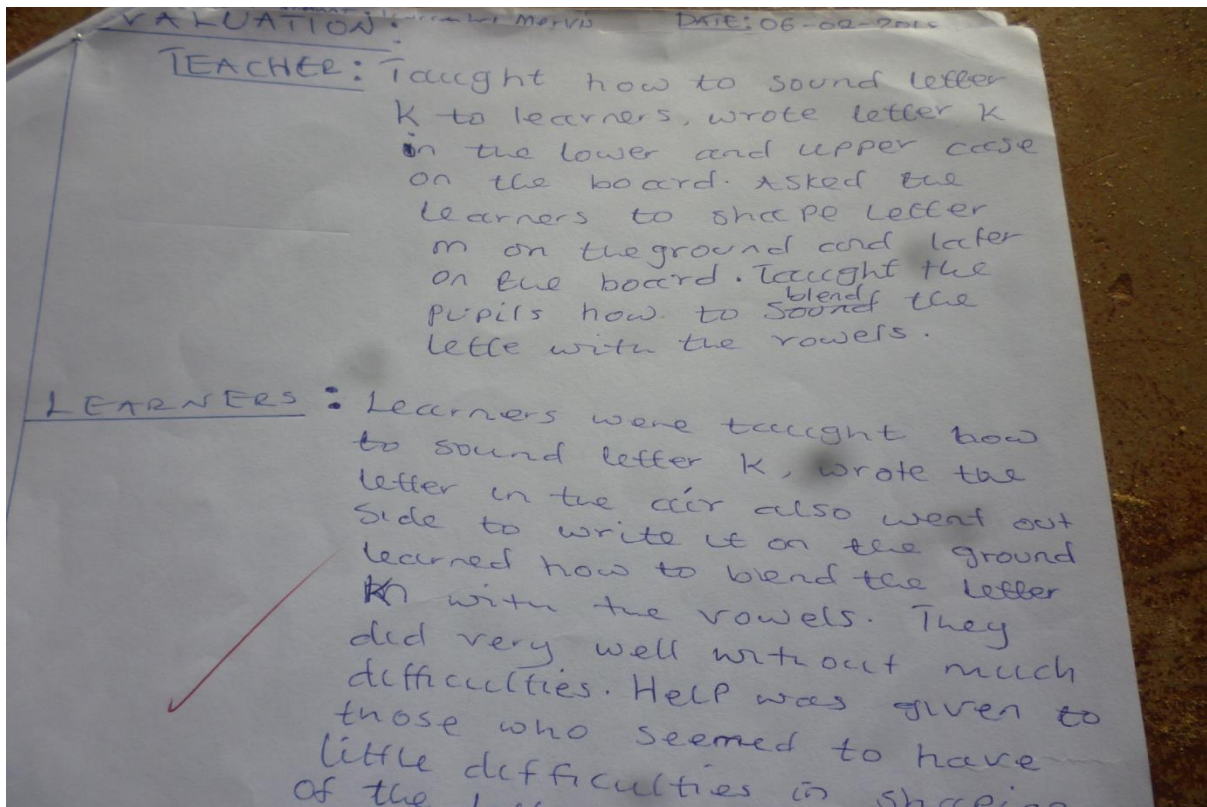 VALUATION:
DATE: 06-02-
TEACHER: Taught how to sound letter
K to learners, wrote letter K
in the lower and upper case
on the board. Asked the
learners to shape letter
m on the ground and later
on the board. Taught the
pupils how to sound blend the
lette with the vowels.
LEARNERS: Learners were taught how
to sound letter K, wrote the
letter in the air also went out
side to write it on the ground
learned how to blend the letter
K with the vowels. They
did very well without much
difficulties. Help was given to
those who seemed to have
little difficulties in shaping
of the